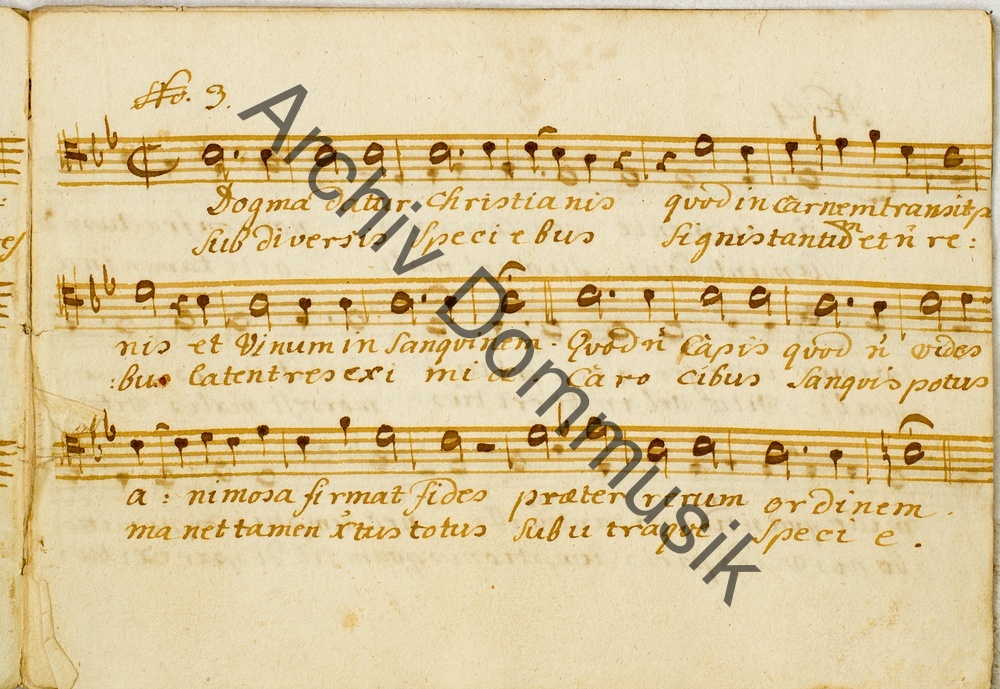 No. 3.
Dogma datur christianis quod in carnem transit p
sub diversis speciebus signis tantum et n̄ re:
nis et Vinum in sanguinem. Quod n̄ capis quod n̄ vides
:bus latent res eximiae. Caro cibus sanguis potus
a: nimosa firmat fides praeter rerum ordinem.
manet tamen xtus totus sub utraque specie.
Archiv Dommusik